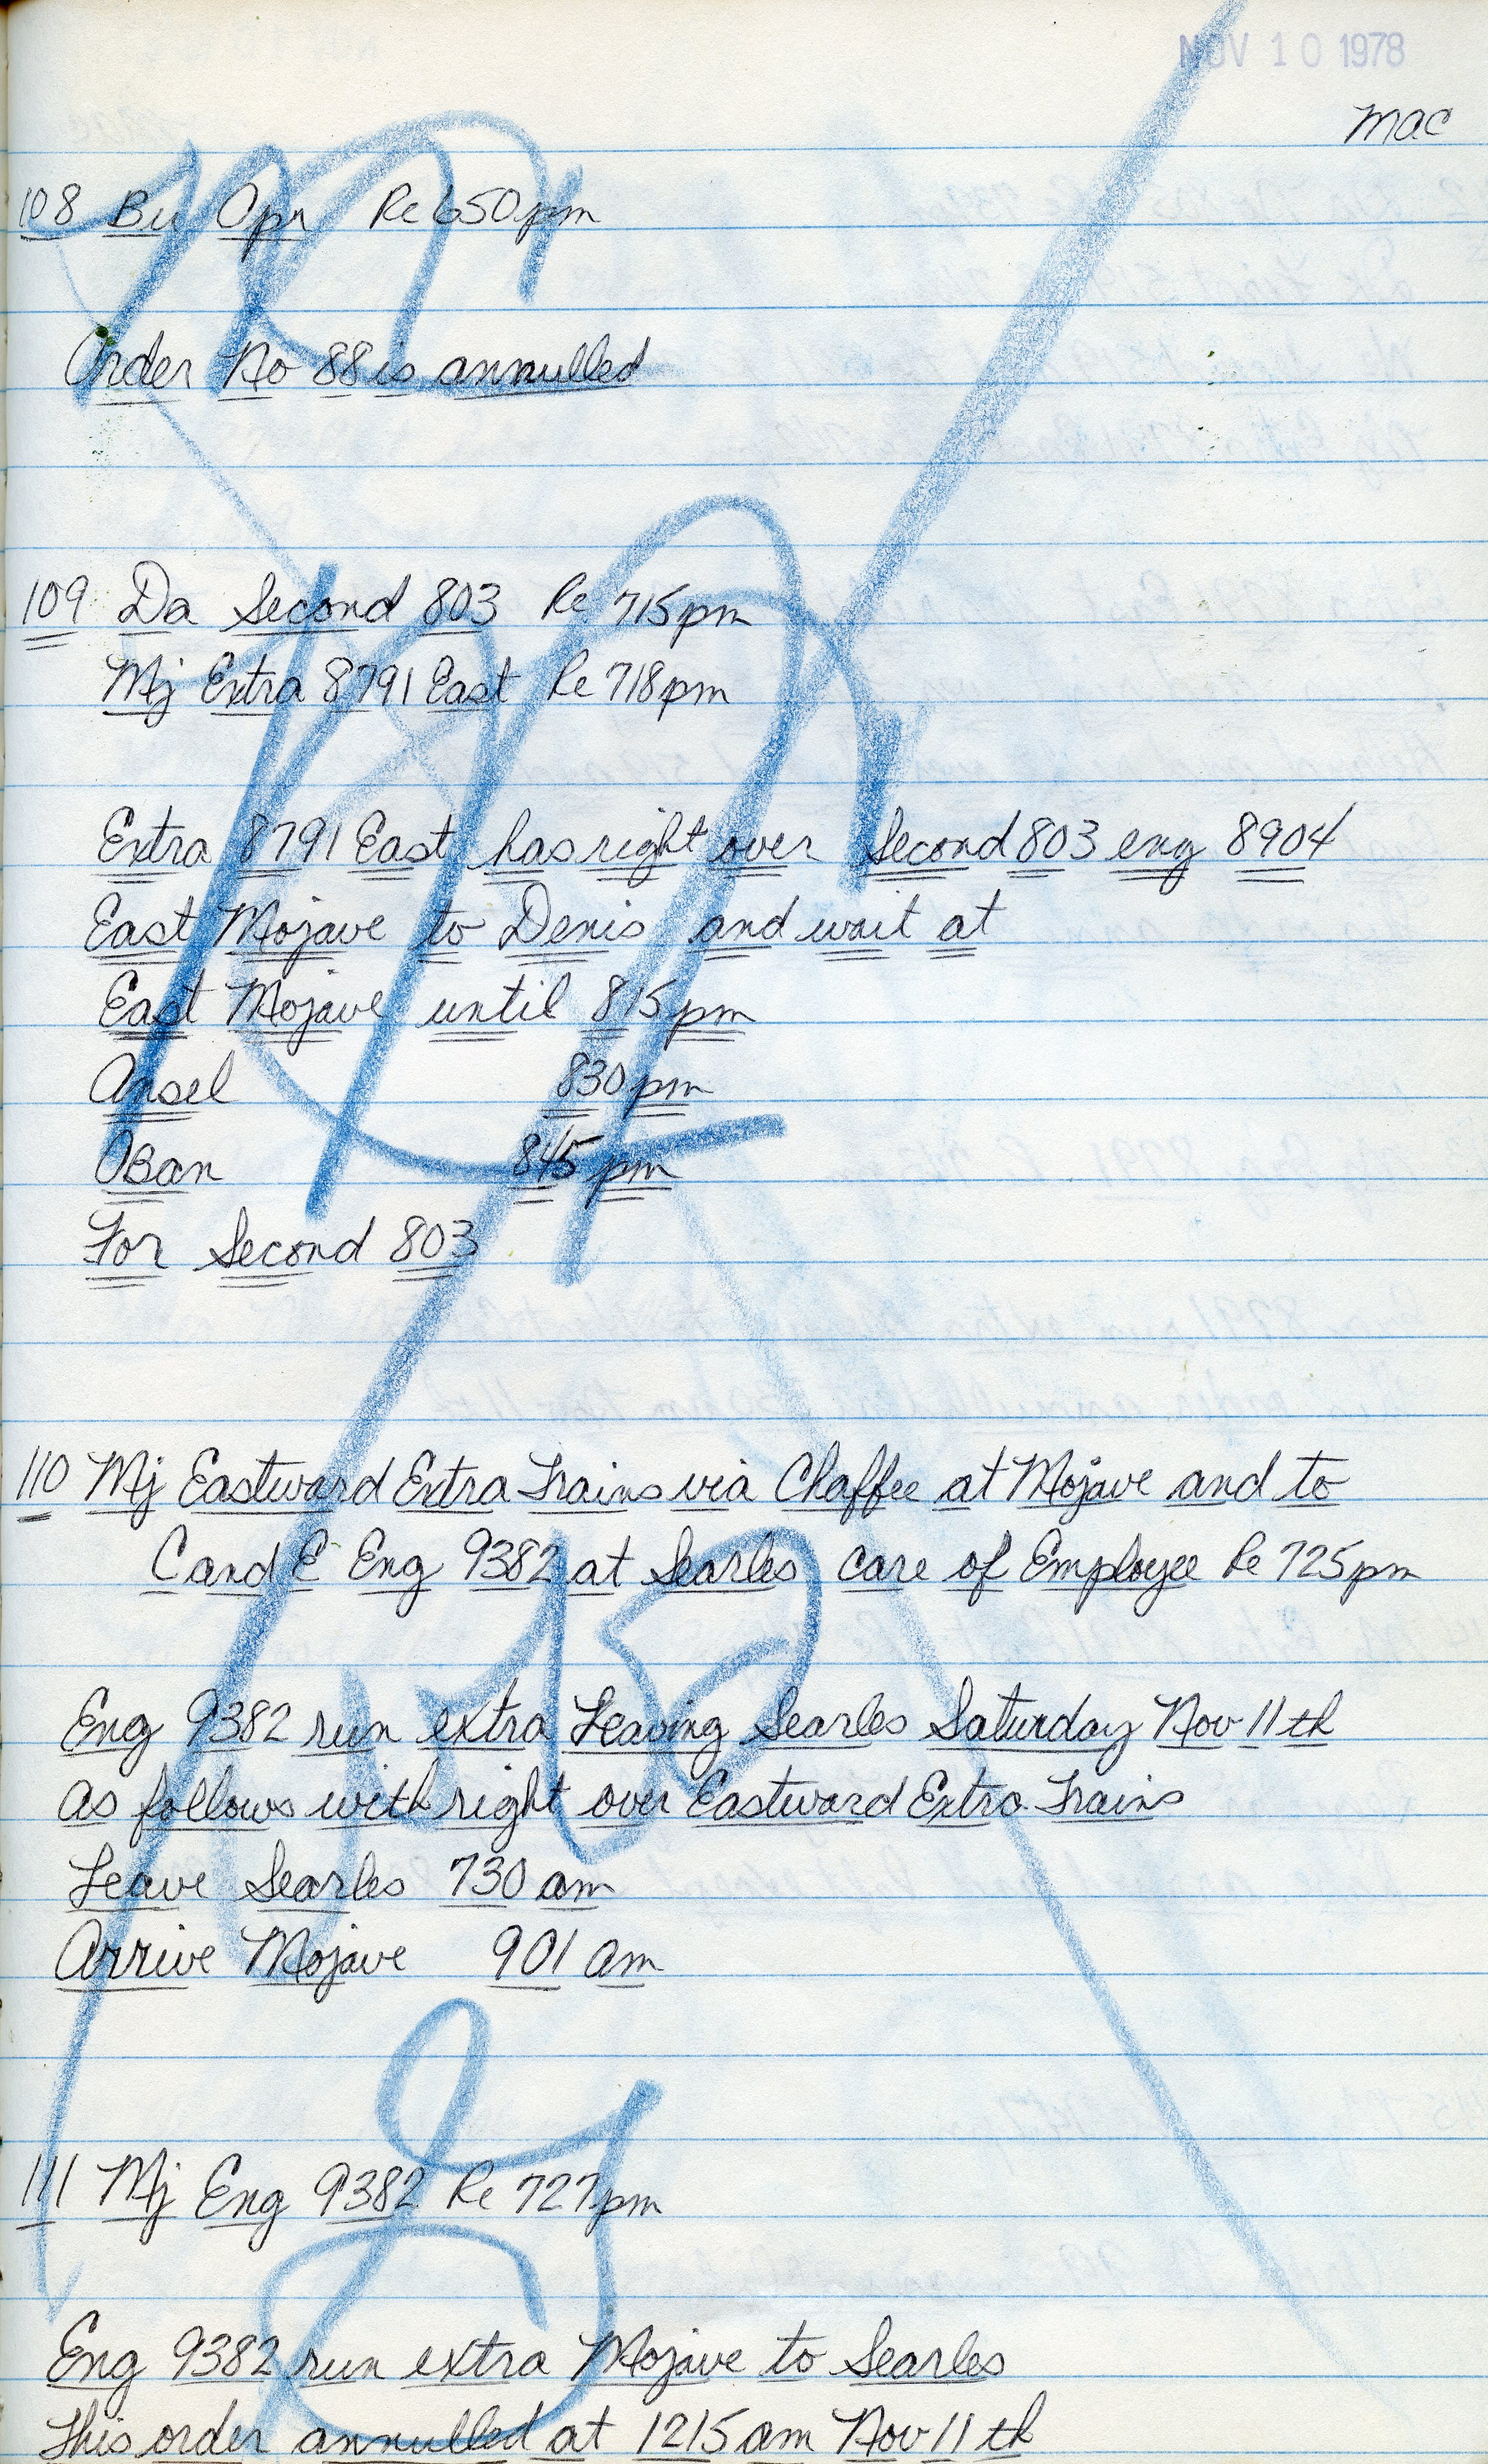 NOV 10 1978
mac
108 Bu Opr Re 650pm
Order No 88 is annulled
109 Da Second 803 Re 715pm
Mj Extra 8791 East Re 718pm
Extra 8791 East has right over Second 803 eng 8904
East Mojave to Denis and wait at
East Mojave until 815pm
Ansel 830pm
Oban 845pm
For Second 803
110 Mj Eastward Extra Trains via Chaffee at Mojave and to
C and E Eng 9382 at Searles care of Employee Re 725pm
Eng 9382 run extra Leaving Searles Saturday Nov 11th
as follows with right over Eastward Extra Trains
Leave Searles 730 am
Arrive Mojave 901 am
111 Mj Eng 9382 Re 727pm
Eng 9382 run extra Mojave to Searles
This order annulled at 1215 am Nov 11th